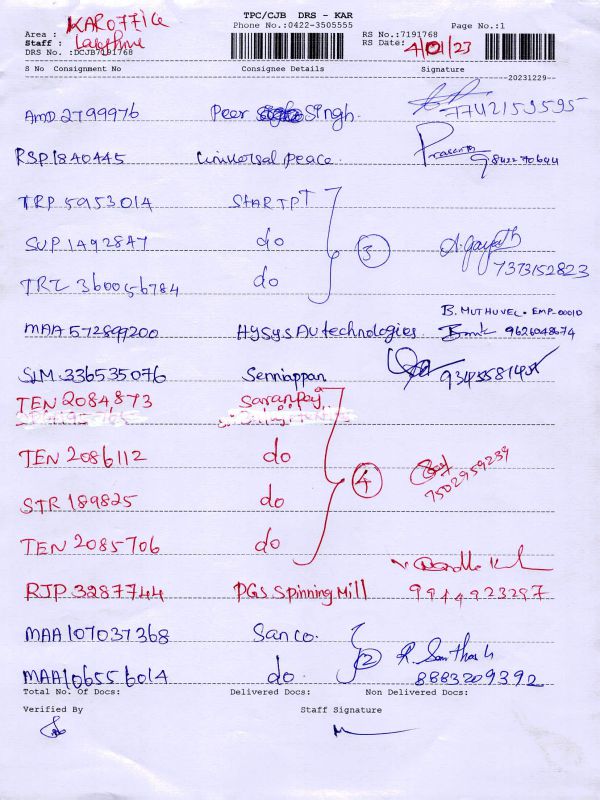 TPC/CJB DRS - KAR
Phone No.:0422-3505555
Page No.:1
Area : KAR OFFICE
Staff :
DRS No. :DCJB7191768
RS No.:7191768
RS Date: 4/01/23
S No Consignment No Consignee Details Signature
20231229
AMD 2799976 Peer Singh. 7742159595
RSP1840445 Universal peace. Prasanth
TRP 5953014 STAR PPT
SUP 1492847 do 3 A. Gayath
TRZ 360056784 do 7373152823
B. MUTHUVEL. EMP-00010
MAA 572899200 HYSYS AU technologies. 9626048674
SLM 336535076 Senniappan
TEN 2084873 Saranraj
TEN 2086112 do
STR 189825 do 4 7502959239
TEN 2085706 do
RJP 3287744 PGS Spinning Mill 9944923297
MAA107037368 Sanco. R. Santhosh
MAA106556014 do. 2 8883209392
Total No. Of Docs: Delivered Docs: Non Delivered Docs:
Verified By Staff Signature